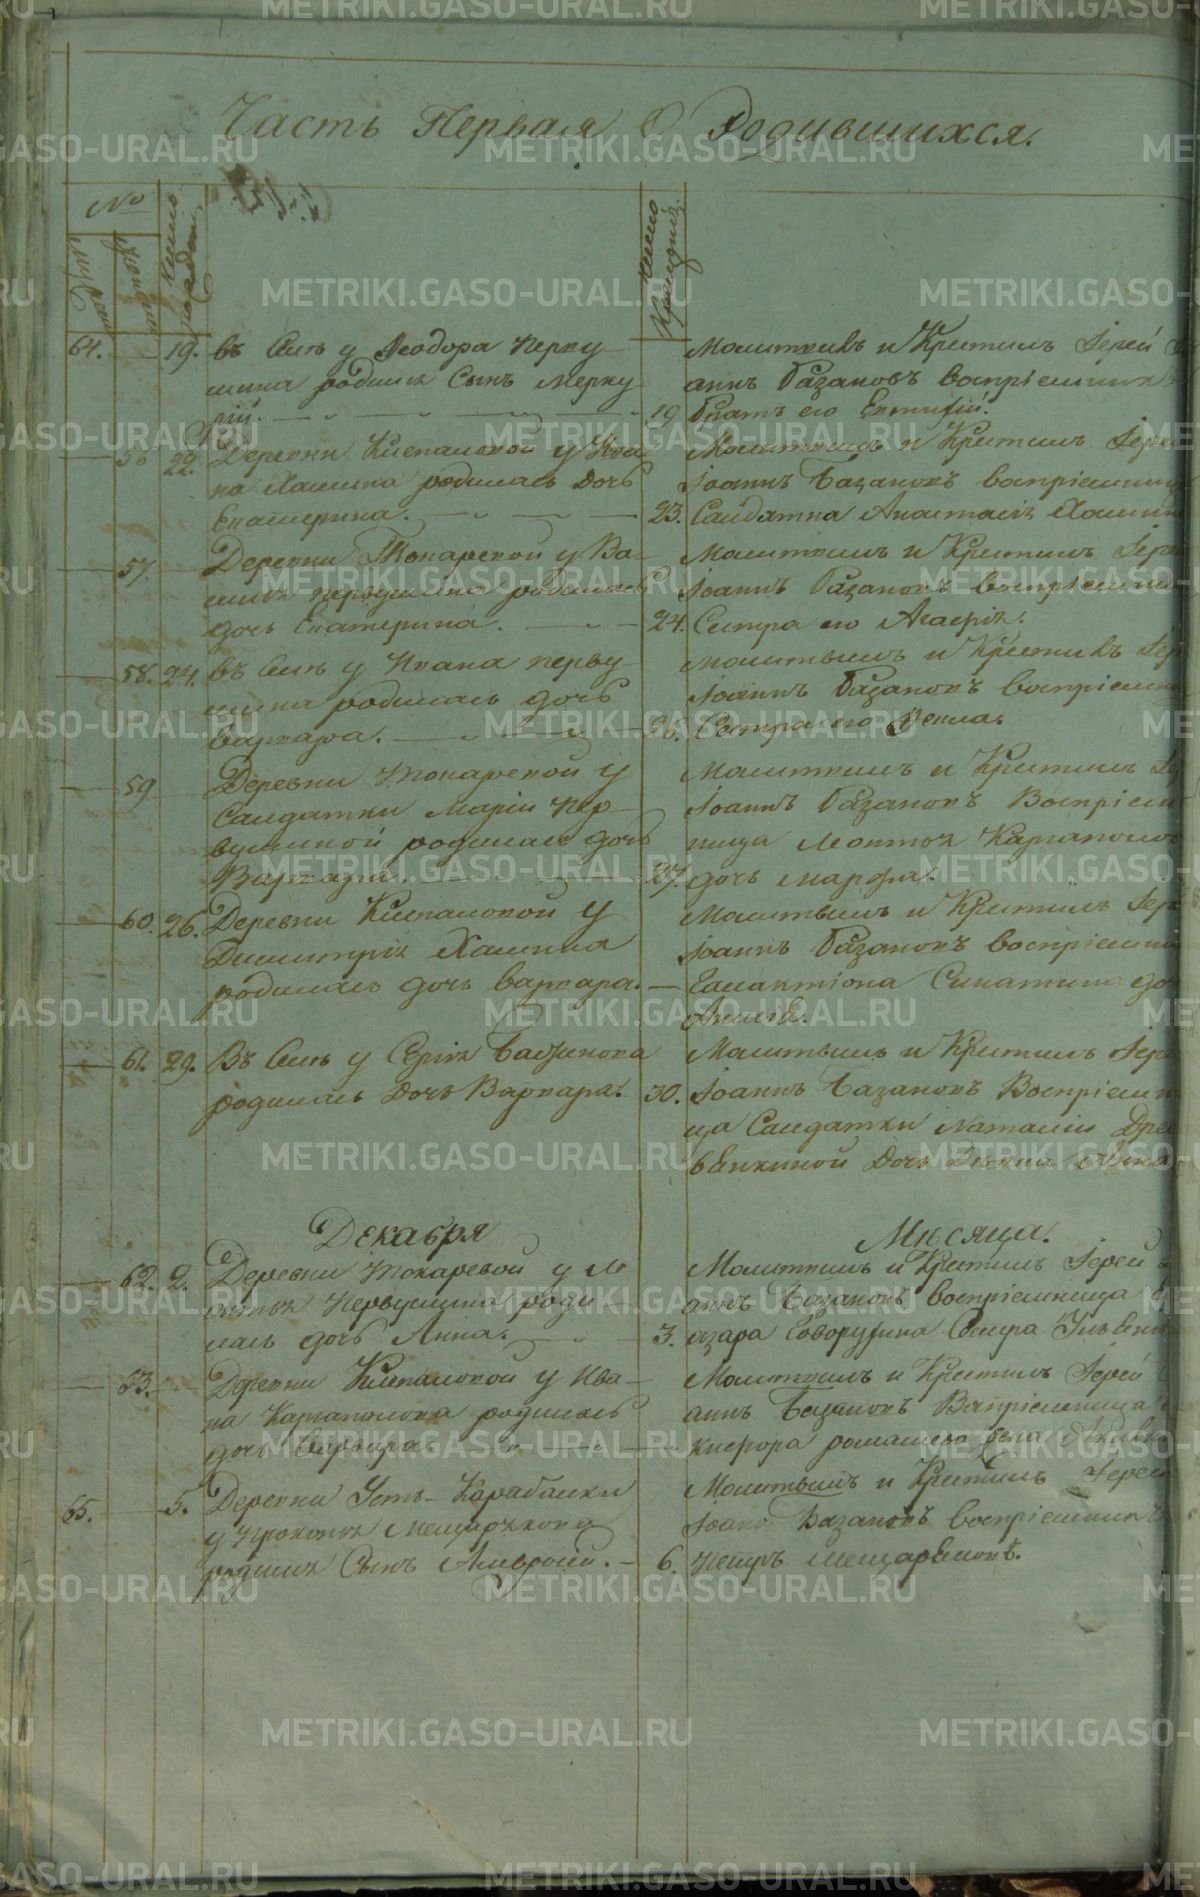 Часть Первая О Родившихся.
№
число
64. 19. въ Селѣ у Ѳеодора Перву
шина родился Сынъ Мерку
рій.
19
Молитвилъ и Крестилъ Іерей
аннъ Базановъ воспріемникъ
братъ его Евтифій.
56 22. Деревни Клепаловой у Ива
на Халина родилась Дочь
Екатерина.
23.
Молитвилъ и Крестилъ Іерей
Іоаннъ Базановъ воспріемница
Салдатка Анастасія Халина
57. Деревни Токаревой у Ва-
силья Первушина родилась
дочь Екатерина.
24.
Молитвилъ и Крестилъ Іерей
Іоаннъ Базановъ воспріемни
Сестра его Агафія.
58. 24. въ Селѣ у Ивана Перву
шина родилась дочь
Варвара.
26.
Молитвилъ и Крестилъ Іер
Іоаннъ Базановъ воспріемни
Сестра его
59 Деревни Токаревой у
Салдатки Маріи Пер
вушиной родилась дочь
Варвара
27.
Молитвилъ и Крестилъ Іе
Іоаннъ Базановъ Воспріем
ница Леонтья Каргаполов
дочь Марфа.
60. 26. Деревни Клепаловой у
Димитрія Халина
родилась дочь Варвара.
Молитвилъ и Крестилъ Іер
Іоаннъ Базановъ воспріемни
Галактіона до
61. 29. Въ Селѣ у Сергія Базанова
родилась Дочь Варвара.
30.
Молитвилъ и Крестилъ Іере
Іоаннъ Базановъ Воспріемн
ца Салдатки Наталіи Дре
Дочь Анна
Декабря Мѣсяца.
62. 2. Деревни Токаревой у Ле
онтья Первушина роди
лась дочь Анна.
3.
Молитвилъ и Крестилъ Іерей
аннъ Базановъ воспріемница
азара Говорухина Сестра
63. Деревни Клепаловой у Ива-
на Каргаполова родилась
дочь Варвара.
Молитвилъ и Крестилъ Іерей
аннъ Базановъ Воспріемница
65. 5. Деревни Усть-Карабалки
у Прокопья Мещарякова
родился Сынъ Амвросій.
6.
Молитвилъ и Крестилъ Іерей
Іоаннъ Базановъ воспріемникъ
Петръ Мещаряковъ.